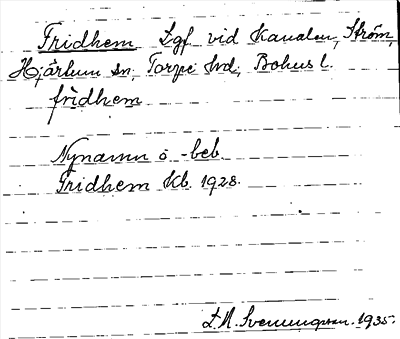 Fridhem Lgf vid Kanalen, Ström,
Hjärtum sn, Torpe hd, Bohus l.
frìdhem
Nynamn å -beb.
Fridhem Kb. 1928.
S.M. Svenungsson. 1935.